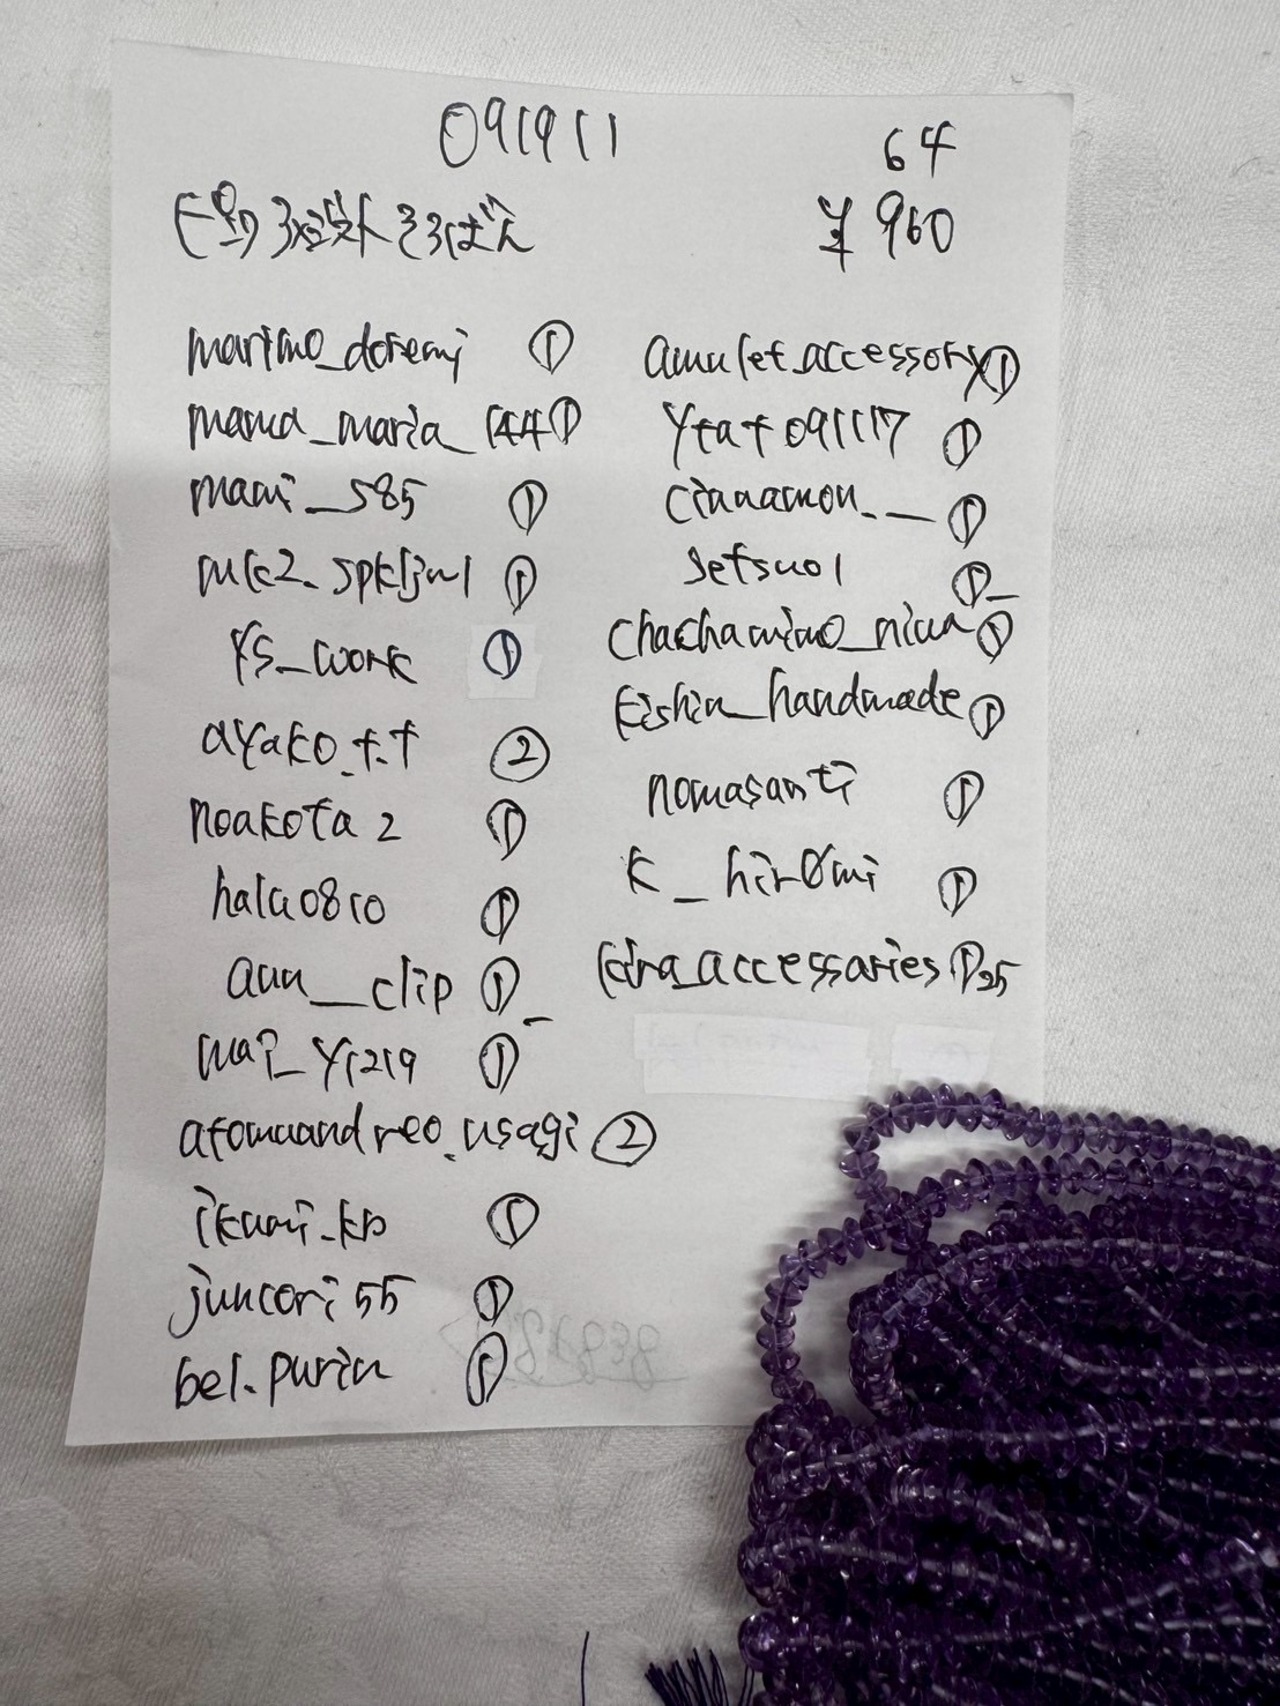 091911
64
¥960
そろばん
marimo_doremi ①
mama_maria_144 ①
mami_585 ①
ys_work ①
ayako.t.t ②
noakota2 ①
halu0810 ①
aun__clip ①
mai_y1219 ①
atomuandreo.usagi ②
ikumi_kp ①
juncori55 ①
bel.purin ①
amulet.accessory ①
ytat091117 ①
cinnamon.__ ①
setsuo1 ①
chachamimo_nina ①
kishin_handmade ①
nomasanti ①
k_hir0mi ①
①25